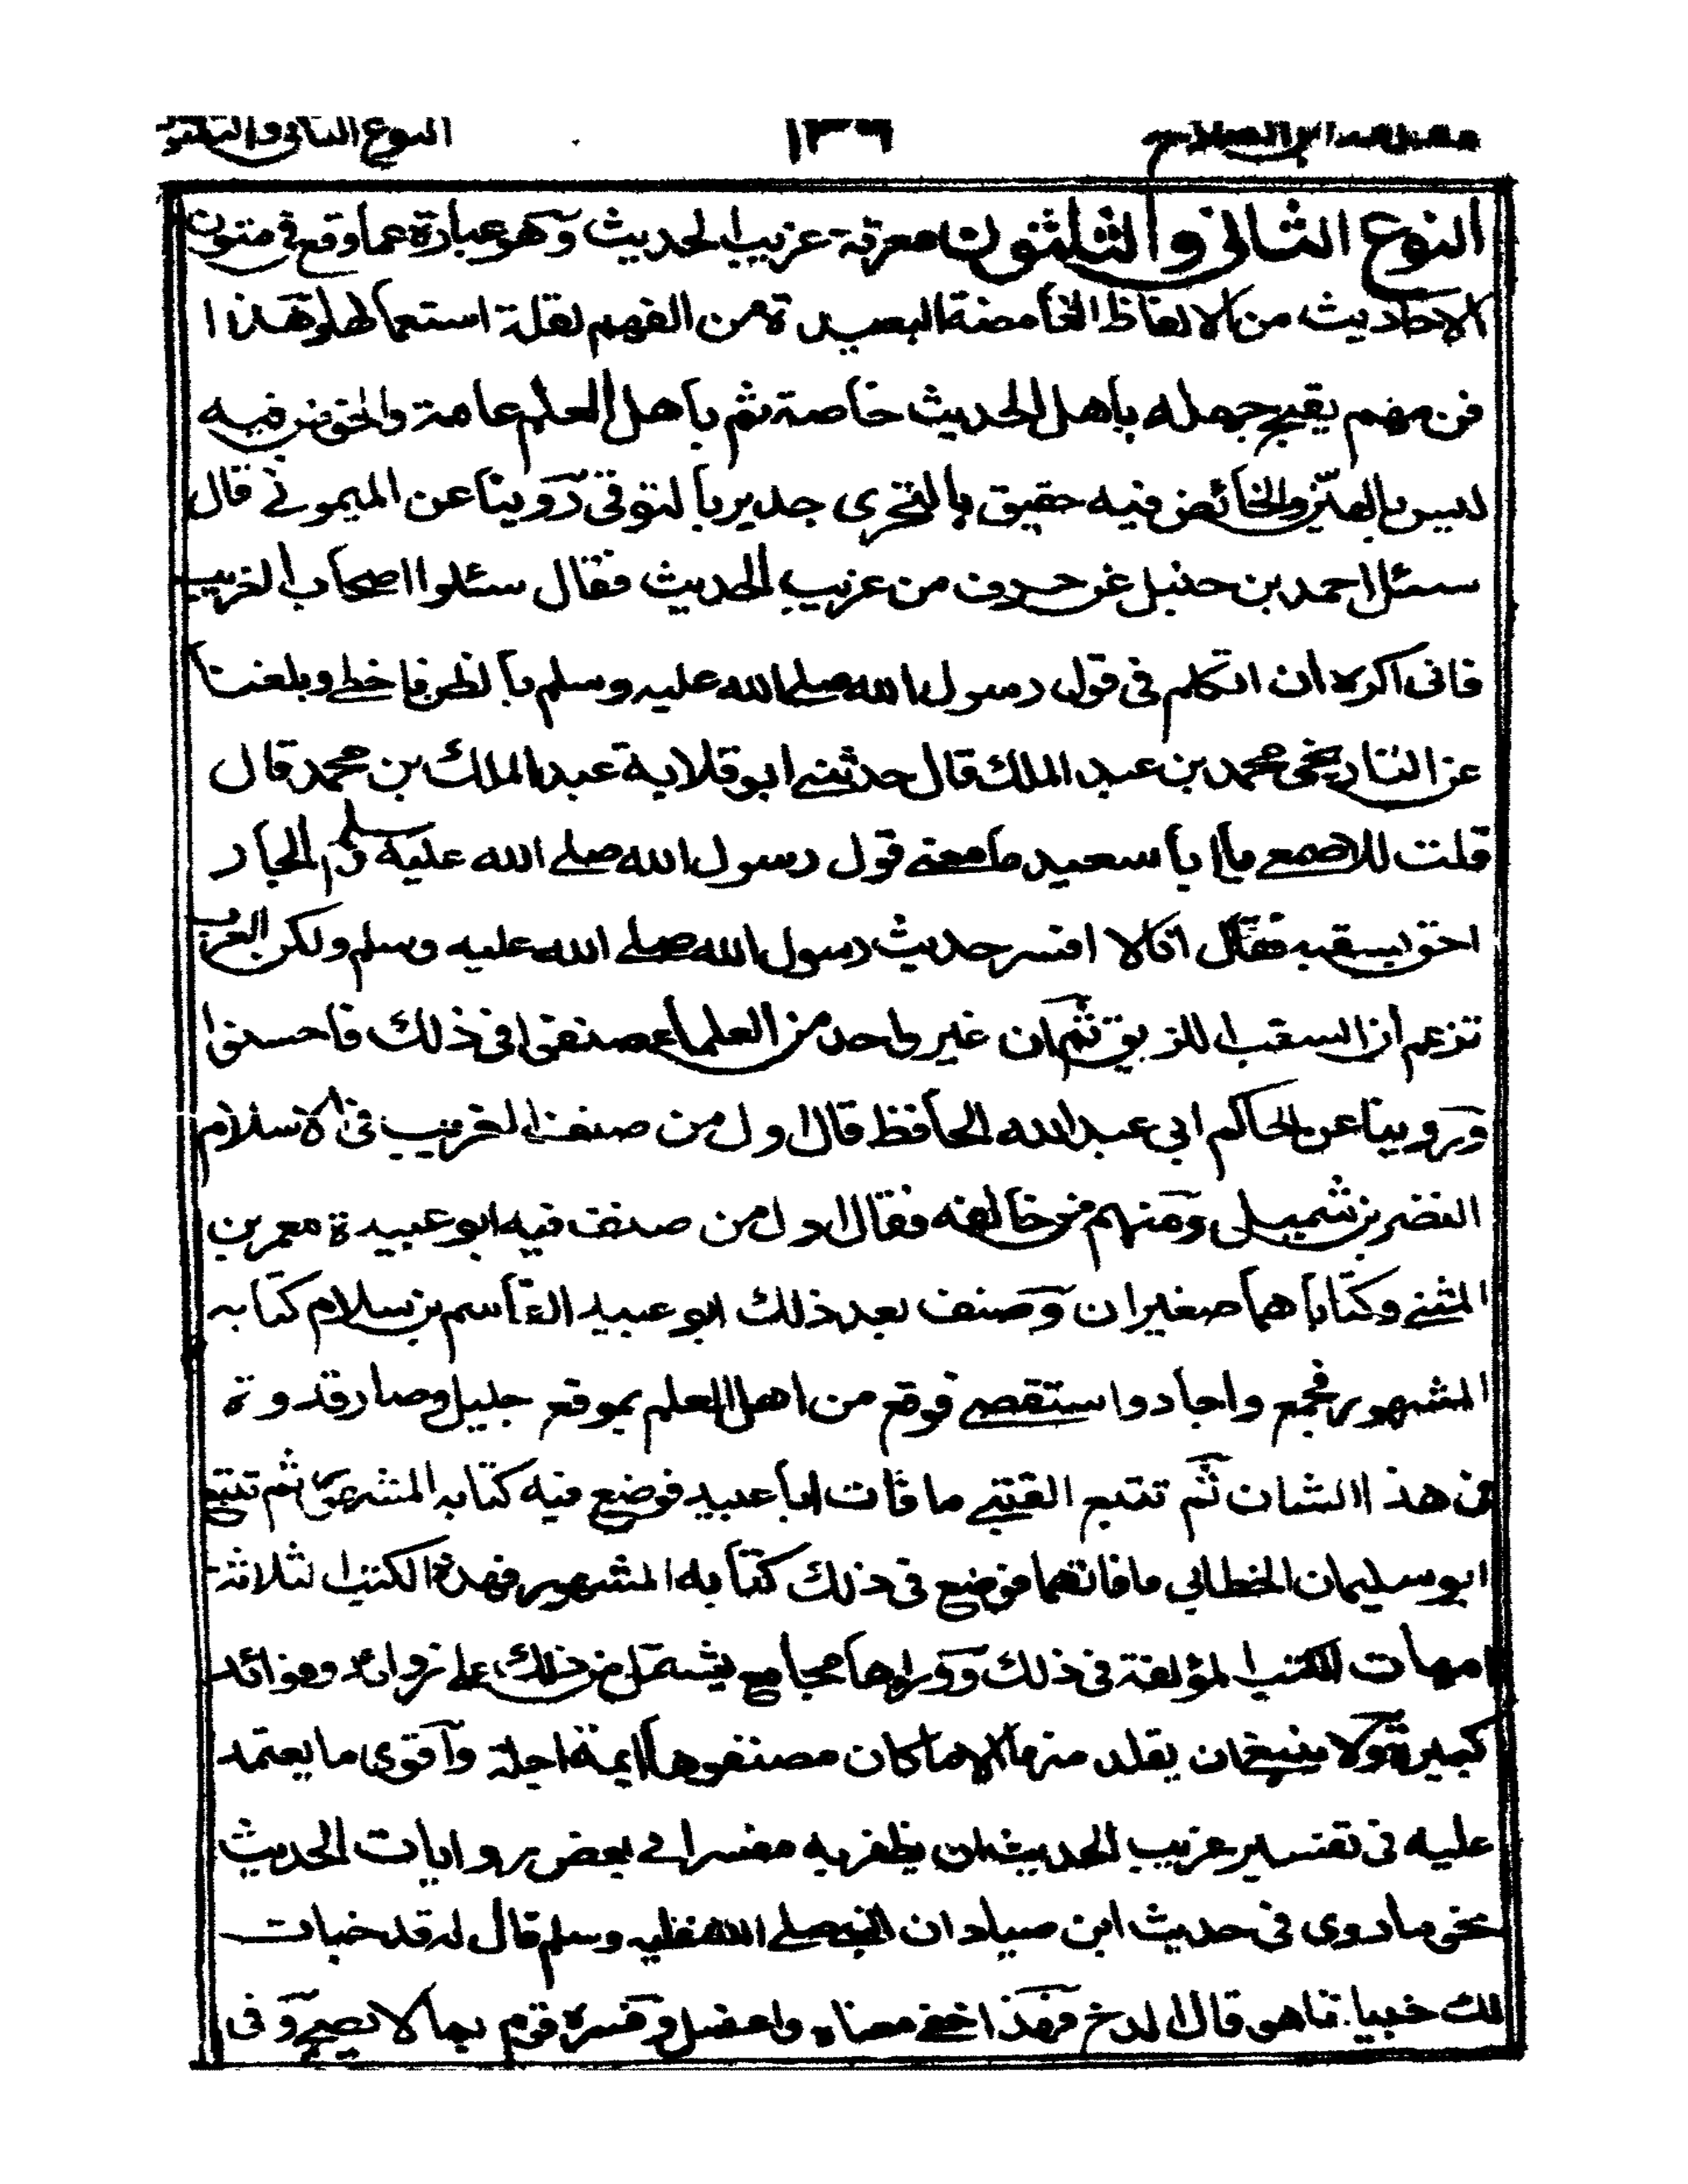 مقدمه ابن الصلاح ١٣٦ النوع الثانی والثلثون
النوع الثانی والثلثون معرفة غریب الحدیث وهو عبارة عما وقع فی متون
الاحادیث من الالفاظ الغامضة البعیدة من الفهم لقلة استعمالها وهذا
فن مهم یقبح جهله باهل الحدیث خاصة ثم باهل العلم عامة والخوض فیه
لیس بالهین والخائض فیه حقیق بالتحری جدیر بالتوقی روینا عن المیمونی قال
سئل احمد بن حنبل عن حرف من غریب الحدیث فقال سئلوا اصحاب الغریب
فانی اکره ان اتکلم فی قول رسول الله صلی الله علیه وسلم بالظن فاخطی وبلغنا
عن التاریخی محمد بن عبد الملک قال حدثنی ابو قلابة عبد الملک بن محمد قال
قلت للاصمعی یا ابا سعید ما معنی قول رسول الله صلی الله علیه وسلم الجار
احق بسقبه فقال انا لا افسر حدیث رسول الله صلی الله علیه وسلم ولکن العرب
تزعم ان السقب اللزیق ثم ان غیر واحد من العلماء صنفوا فی ذلک فاحسنوا
وروینا عن الحاکم ابی عبد الله الحافظ قال اول من صنف الغریب فی الاسلام
النضر بن شمیل ومنهم من خالفه فقال اول من صنف فیه ابو عبیدة معمر بن
المثنی وکتاباهما صغیران وصنف بعد ذلک ابو عبید القاسم بن سلام کتابه
المشهور فجمع واجاد واستقصی فوقع من اهل العلم بموقع جلیل وصار قدوة
فی هذا الشان ثم تتبع القتیبی ما فات ابا عبید فوضع فیه کتابه المشهور ثم تتبع
ابو سلیمان الخطابی ما فاتهما فوضع فی ذلک کتابه المشهور فهذه الکتب الثلاثة
امهات الکتب المؤلفة فی ذلک ووراءها مجامع یشتمل من ذلک علی زوائد وفوائد
کثیرة ولا ینبغی ان یقلد منها الا ما کان مصنفوها ایمة اجلة واقوی ما یعتمد
علیه فی تفسیر غریب الحدیث ان یظفر به مفسرا فی بعض روایات الحدیث
نحو ما روی فی حدیث ابن صیاد ان النبی صلی الله علیه وسلم قال له قد خبات
لک خبیا فما هو قال الدخ فهذا خفی معناه واعضل وفسره قوم بما لا یصح وفی